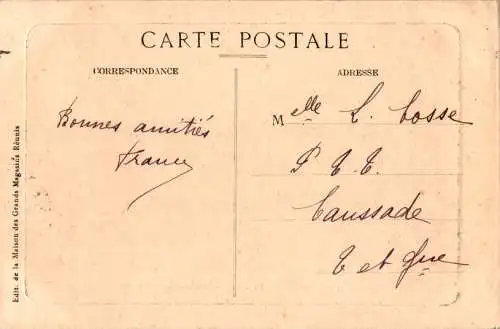 CARTE POSTALE
CORRESPONDANCE
ADRESSE
Bonnes amitiés
France
Melle L. Cosse
P T T.
Caussade
T et Gne
Edit. de la Maison des Grands Magasins Réunis